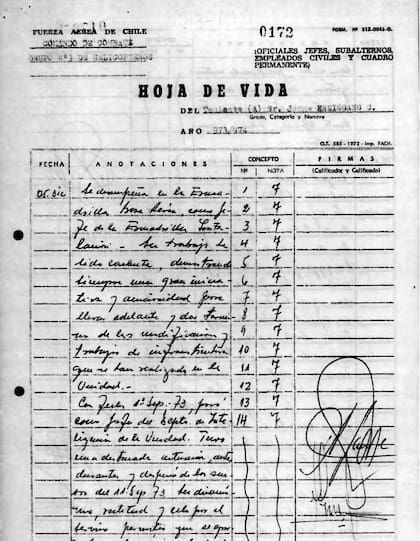 FUERZA AEREA DE CHILE
COMANDO DE COMBATE
GRUPO Nº3 DE HELICOPTEROS
0172
(OFICIALES JEFES, SUBALTERNOS,
EMPLEADOS CIVILES Y CUADRO
PERMANENTE)
HOJA DE VIDA
DEL Teniente (A) Sr.
Grado, Categoría y Nombre
AÑO 973/974
O.T. 585 - 1972 - Imp. FACH.
FECHA ANOTACIONES CONCEPTO FIRMAS
Nº NOTA (Calificador y Calificado)
05. Dic Se desempeña en la Escua- 1 7
drilla Base como Je- 2 7
fe de la Escuadrilla 3 7
. - Su trabajo ha 4 7
sido demostrando 5 7
siempre una gran inicia- 6 7
tiva y para 7 7
llevar adelante y dar 8 7
de las y 9 7
trabajos de infraestructura 10 7
que se han realizado en la 11 7
Unidad. - 12 7
Con fecha 1º Sep. 73, pasó 13 7
como Jefe del Depto. de Inte- 14 7
ligencia de la Unidad. Tuvo
una destacada actuación ante,
durante y después de los suce-
sos del 11 Sep 73. Su
rectitud y celo por el
servicio permiten que el